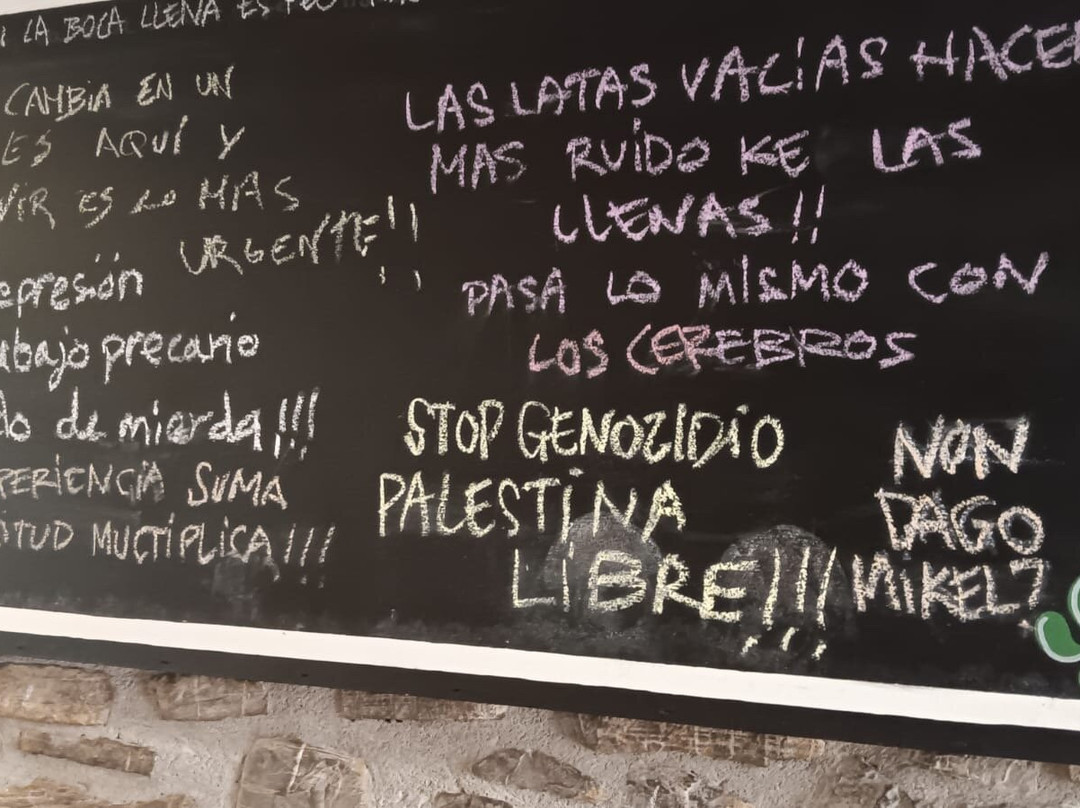 LA BOCA LLENA ES
CAMBIA EN UN
ES AQUÍ Y
ViR ES LO MAS
URGENTE!!
epresión
abajo precario
do de mierda!!!
PERiENCiA SUMA
iTUD MUCTiPLiCA!!!
LAS LATAS VACíAS HACEN
MAS RUiDO KE LAS
LLENAS!!
PASA LO MiSMO CON
LOS CEREBROS
STOP GENOZIDiO
PALESTiNA
LiBRE!!!
NON
DAGO
MiKEL?